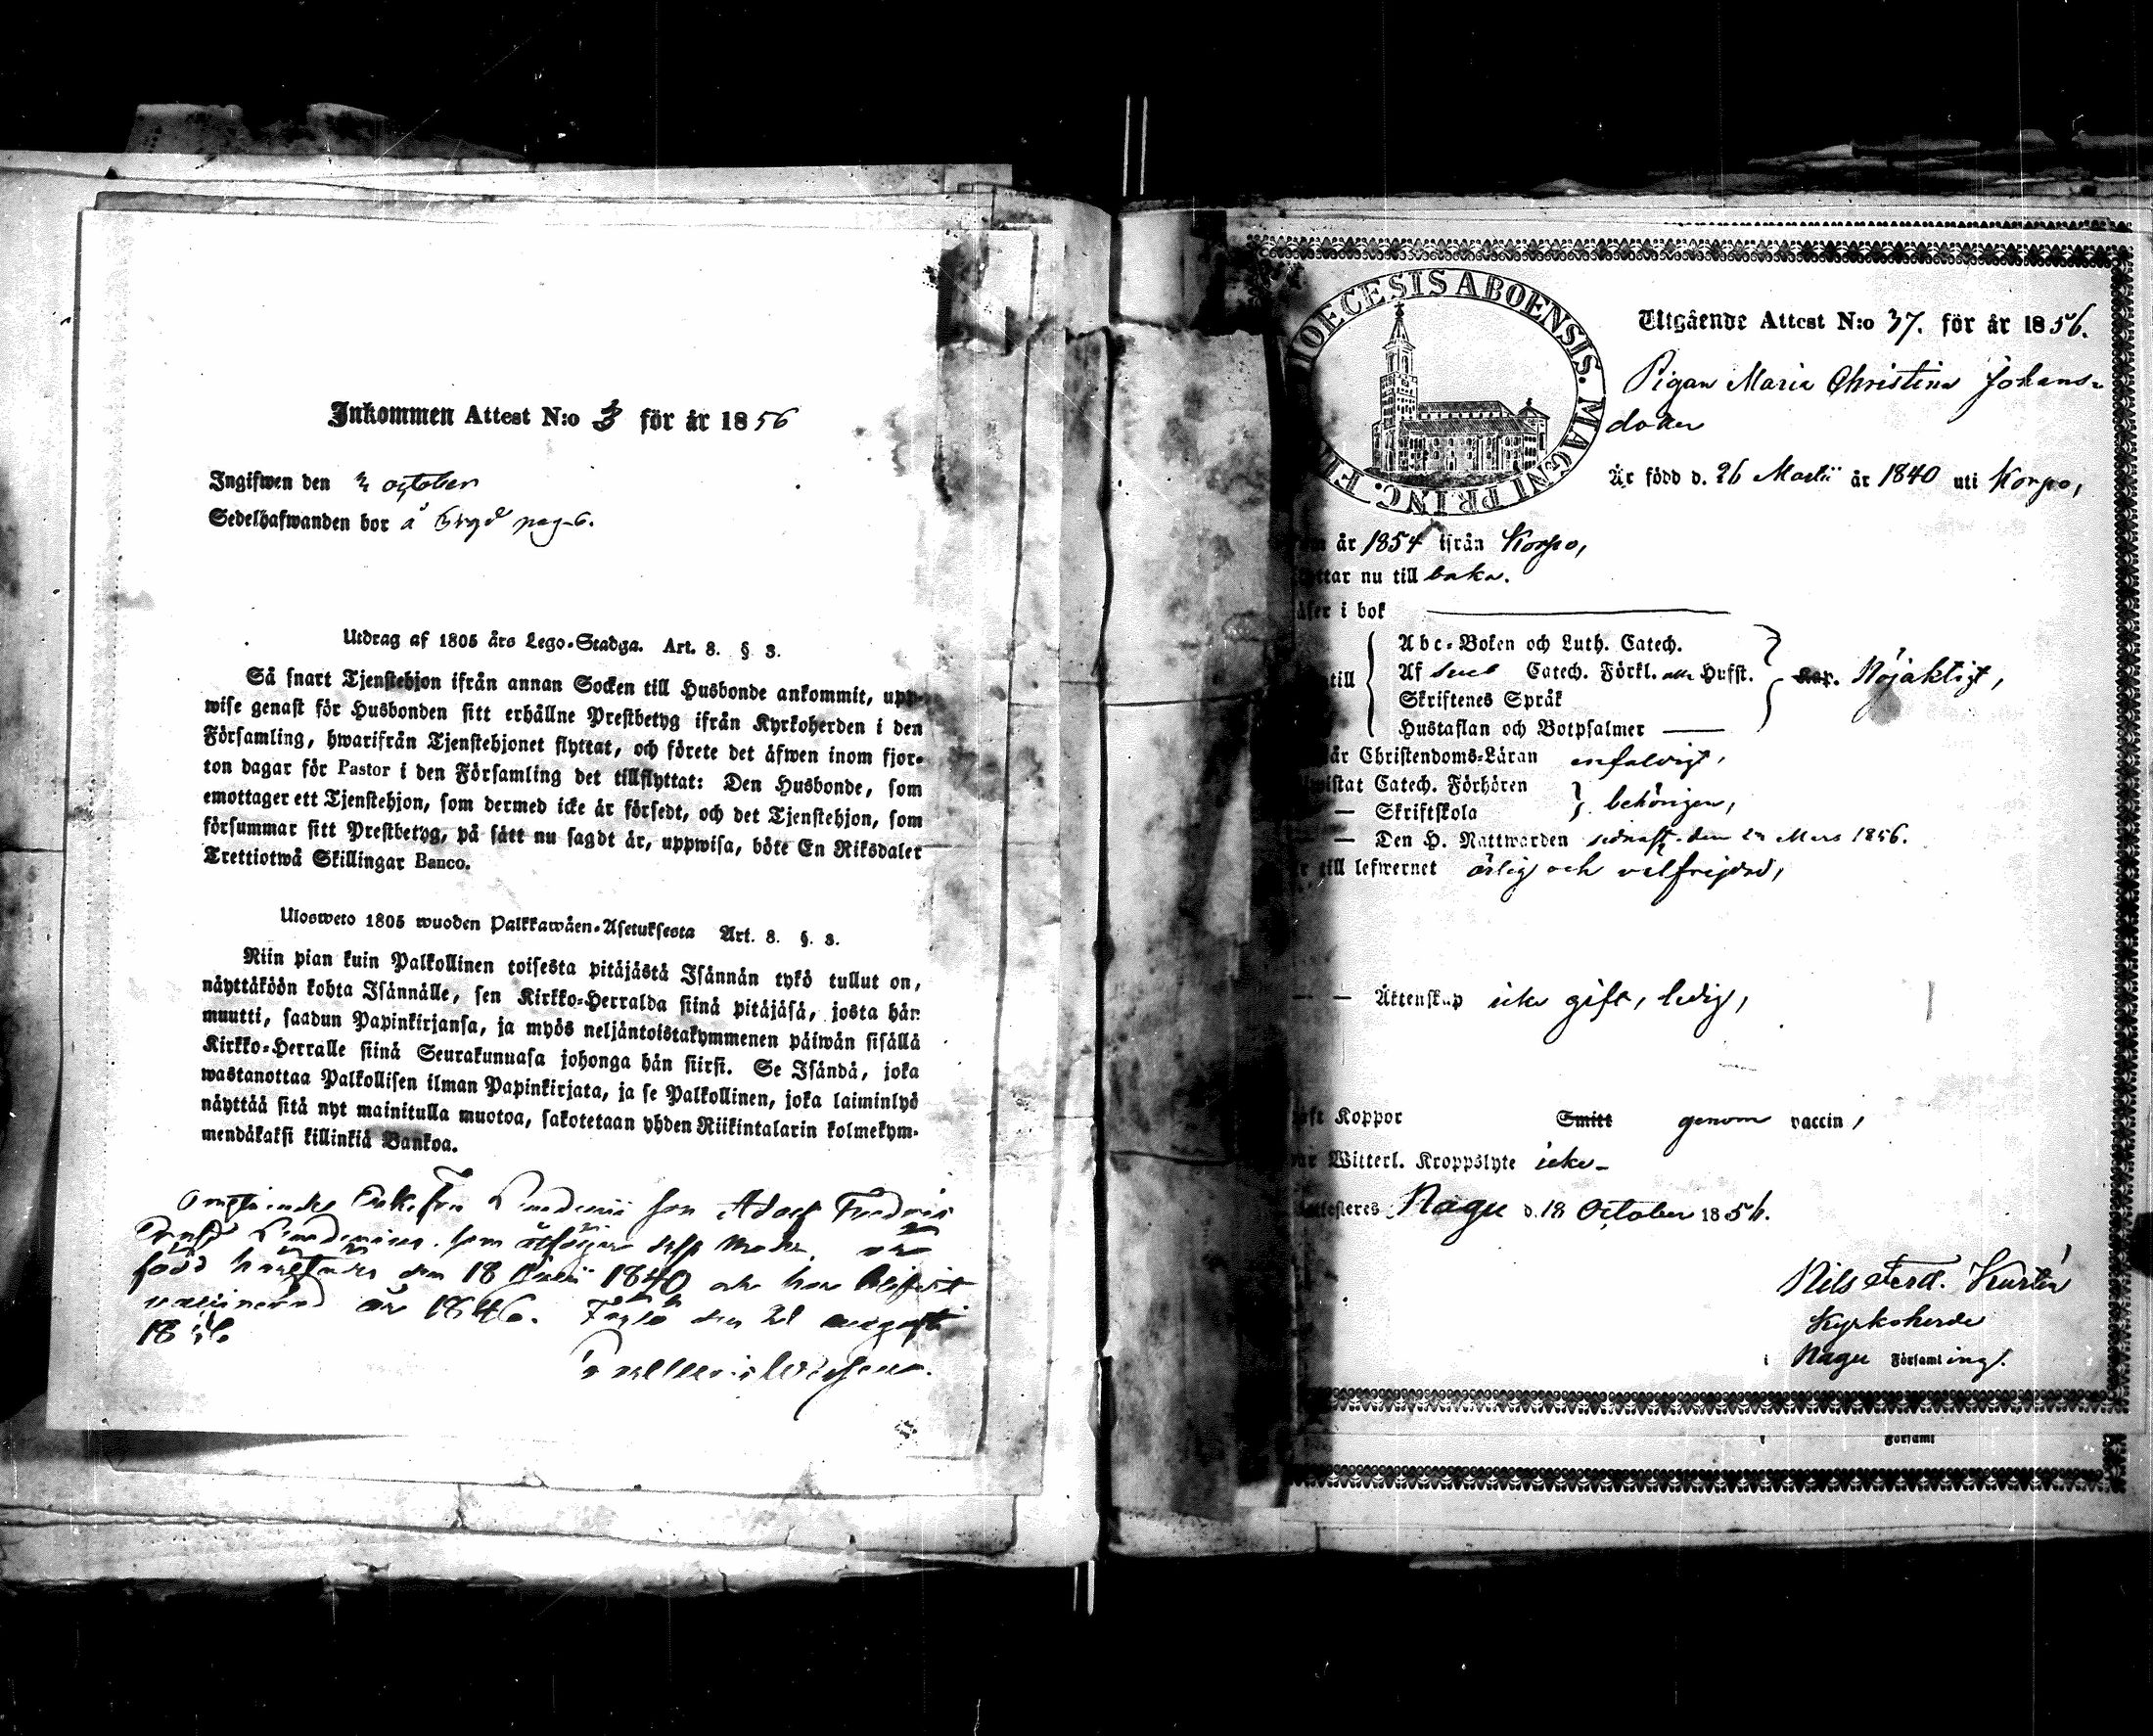 Inkommen Attest N:o 3 för år 1856
Ingifwen den october
Sedelhafwanden bor å pag. 6.
Utdrag af 1805 års Lego-Stadga. Art. 8. § 3.
Så snart Tjenstehjon ifrån annan Socken till Husbonde ankommit, upp-
wise genast för Husbonden sitt erhållne Prestbetyg ifrån Kyrkoherden i den
Församling, hwarifrån Tjenstehjonet flyttat, och förete det äfwen inom fjor-
ton dagar för Pastor i den Församling det tillflyttat: Den Husbonde, som
emottager ett Tjenstehjon, som dermed icke är försedt, och det Tjenstehjon, som
försummar sitt Prestbetyg, på sätt nu sagdt är, uppwisa, böte En Riksdaler
Trettiotwå Skillingar Banco.
Ulosweto 1805 wuoden Palkkawäen-Asetuksesta Art. 8. §. 3.
Niin pian kuin Palkollinen toisesta pitäjästä Isännän tykö tullut on,
näyttäköön kohta Isännälle, sen Kirkko-Herralda siinä pitäjäsä, josta hän
muutti, saadun Papinkirjansa, ja myös neljäntoistakymmenen päiwän sisällä
Kirkko-Herralle siinä Seurakunnasa johonga hän siirsi. Se Isändä, joka
wastanottaa Palkollisen ilman Papinkirjata, ja se Palkollinen, joka laiminlyö
näyttää sitä nyt mainitulla muotoa, sakotetaan yhden Riikintalarin kolmekym-
mendäkaksi killinkiä Bankoa.
son Adolf Fredric
som åtföljer dess Moder, är
född den 18 1840 och har blifvit
vaccinerad år 1846. den 21 augusti
1856
DIOECESIS ABOENSIS. MAGNI PRINC. FI
Utgående Attest N:o 37. för år 1856.
Pigan Maria Christina Johans-
doter
Är född d. 26 Martii år 1840 uti Korpo,
år 1854 ifrån Korpo,
ttar nu till baka.
äser i bok
till
Abc-Boken och Luth. Catech.
Af Catech. Förkl. Hufst.
Skriftenes Språk
Hustaflan och Botpsalmer
Nöjaktigt,
år Christendoms-Läran enfaldigt,
wistat Catech. Förhören
— Skriftskola
behörigen,
— — Den H. Nattwarden sednast den 24 Mars 1856.
till lefwernet ärlig och välfrejdad,
— — Äktenskap icke gift, ledig,
aft Koppor Smitt genom vaccin,
Witterl. Kroppslyte icke
Attesteres Nagu d. 18 October 1856.
Nils Ferd.
Kyrkoherde
i Nagu Församling.
i Församl